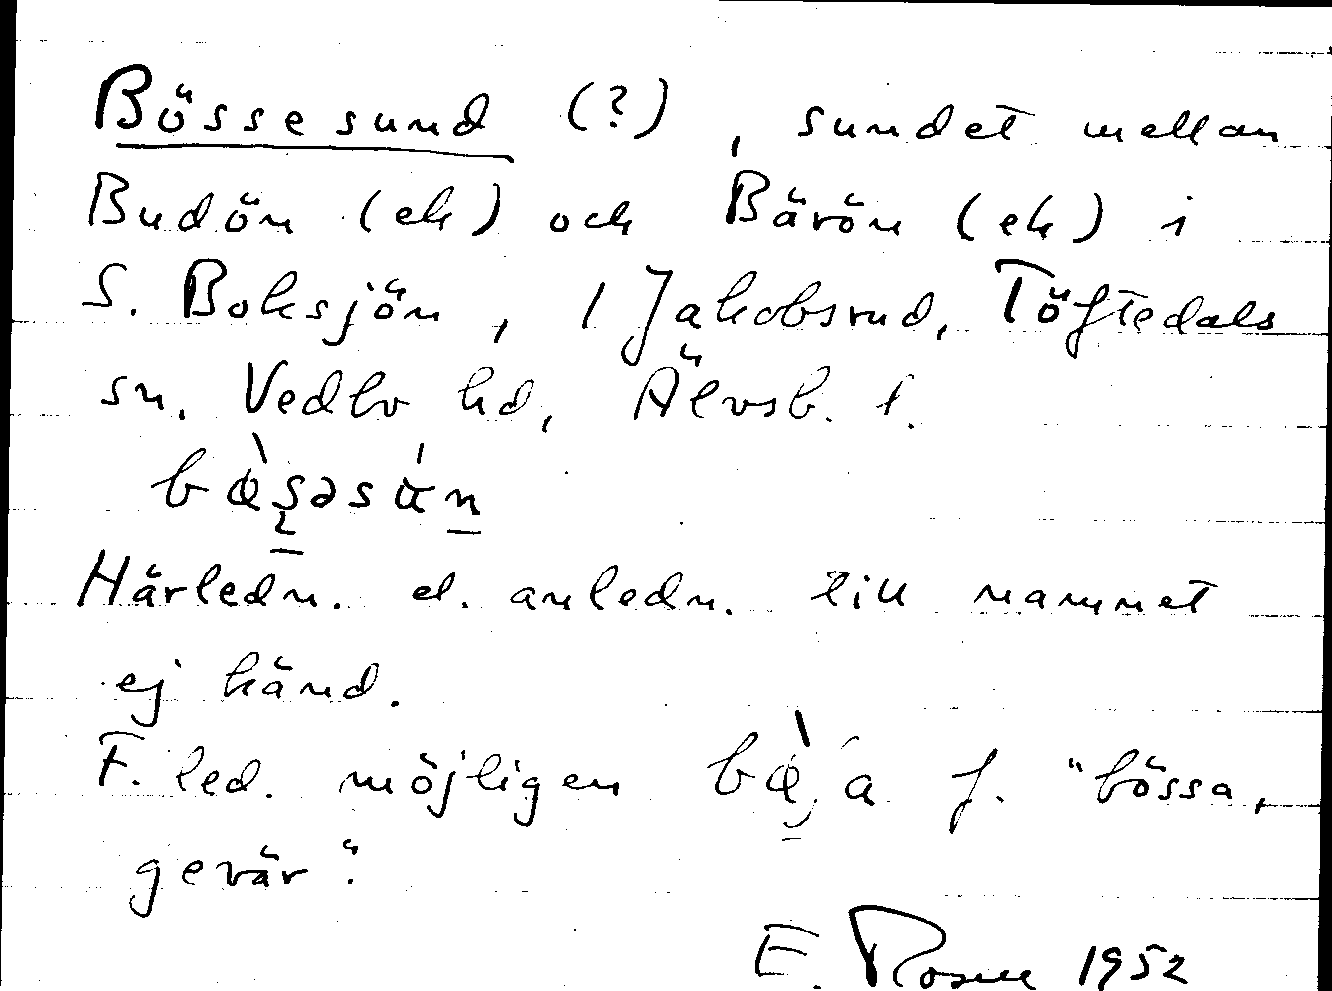 Bössesund (?), sundet mellan
Budön (ek) och Bärön (ek) i
S. Boksjön, 1 Jakobsrud, Töftedals
sn. Vedbo hd, Älvsb. l.
Härledn. el. anledn. till namnet
ej känd.
F. led. möjligen f. "bössa,
gevär".
E. 1952